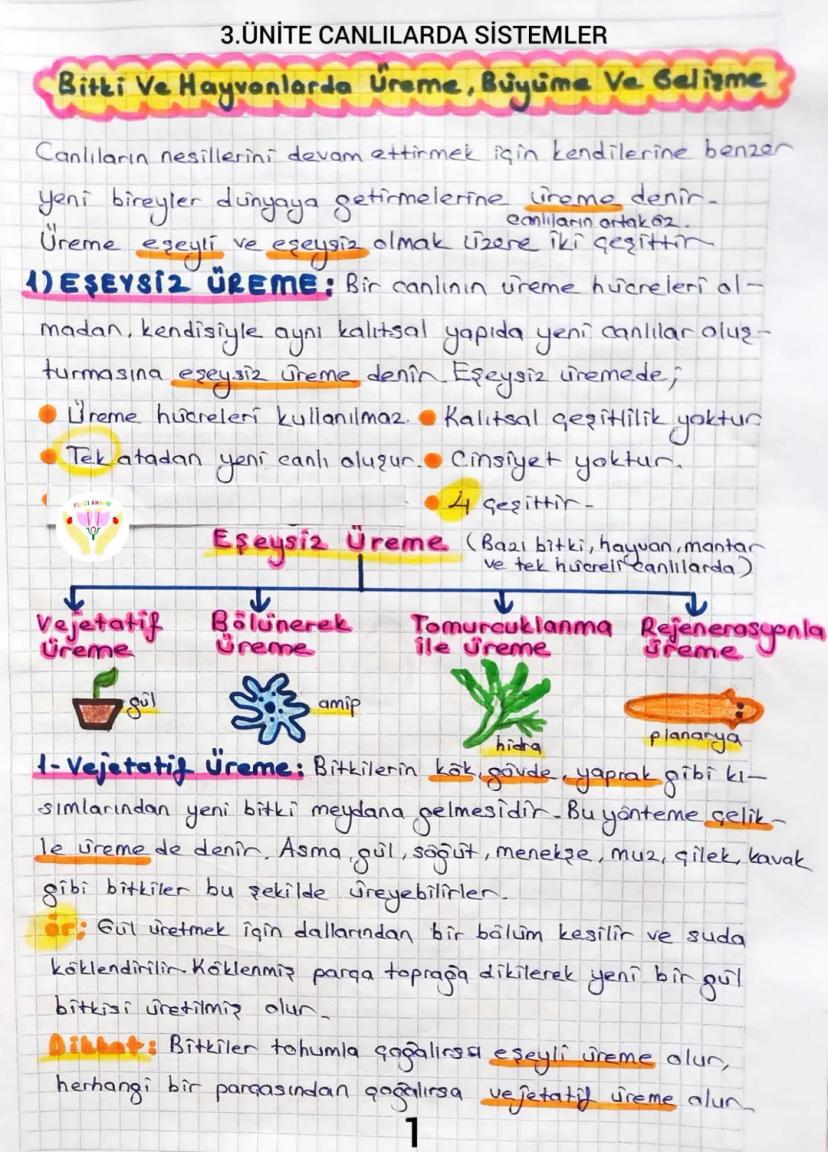 3.ÜNİTE CANLILARDA SİSTEMLER
Bitki Ve Hayvanlarda Üreme, Büyüme Ve Gelişme
Canlıların nesillerini devam ettirmek için kendilerine benzer
yeni bireyler dünyaya getirmelerine üreme denir.
canlıların ortak öz.
Üreme eşeyli ve eşeysiz olmak üzere iki çeşittir.
1) EŞEYSİZ ÜREME: Bir canlının üreme hücreleri ol-
madan, kendisiyle aynı kalıtsal yapıda yeni canlılar oluş-
turmasına eşeysiz üreme denir. Eşeysiz üremede;
Üreme hücreleri kullanılmaz. Kalıtsal çeşitlilik yoktur.
Tek atadan yeni canlı oluşur. Cinsiyet yoktur.
4 çeşittir.
Eşeysiz Üreme (Bazı bitki, hayvan, mantar
ve tek hücreli canlılarda)
Vejetatif Üreme
Bölünerek Üreme
Tomurcuklanma ile üreme
Rejenerasyonla üreme
gül
amip
hidra
planarya
1- Vejetatif Üreme: Bitkilerin kök, gövde, yaprak gibi kı-
sımlarından yeni bitki meydana gelmesidir. Bu yönteme çelik-
le üreme de denir. Asma, gül, söğüt, menekşe, muz, çilek, kavak
gibi bitkiler bu şekilde üreyebilirler.
ör; Gül üretmek için dallarından bir bölüm kesilir ve suda
köklendirilir. Köklenmiş parça toprağa dikilerek yeni bir gül
bitkisi üretilmiş olur.
Dikkat: Bitkiler tohumla çoğalırsa eşeyli üreme olur,
herhangi bir parçasından çoğalırsa vejetatif üreme olur.
1